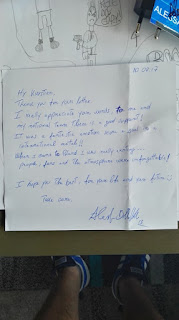 ALEJSA
10.04.17
My
Thank you for your letter.
I really appreciate your words for me and
my national team. There is a good support!
It was a fantastic emotion score a goal in a
international match!!
When I came to I was really
people, fans and the atmosphere were unforgettable!
I hope you the best, for your life and your future!
Take care,